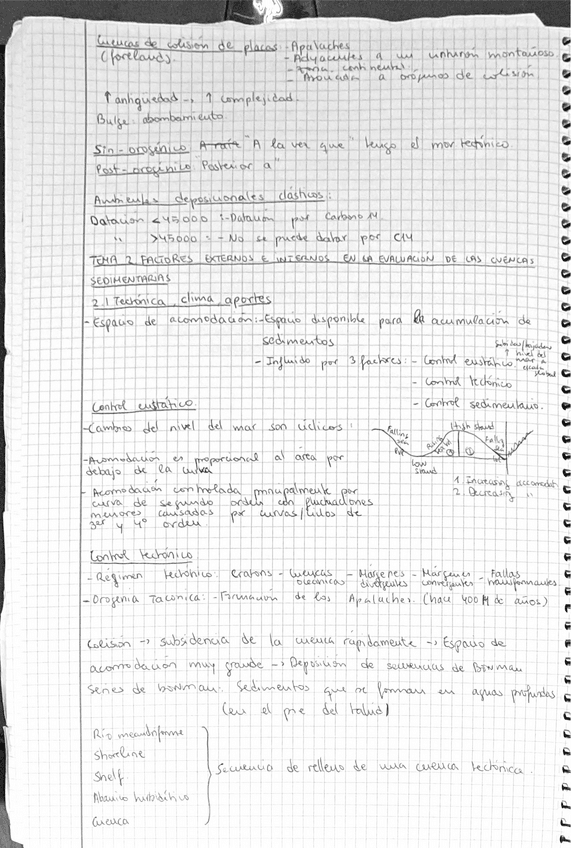 Cuencas de colisión de placas: - Apalaches
(foreland). - Adyacentes a un cinturón montañoso
- Zona continental
- Asociada a orógenos de colisión
↑ antiguedad → ↑ complejidad.
Bulge: abombamiento
Sin-orogénico "A la vez que" tengo el mov tectónico.
Post-orogénico "Posterior a"
Ambientes deposicionales clásticos:
Datación < 45000 :- Datación por Carbono 14
" > 45000 :- No se puede datar por C14
TEMA 2 FACTORES EXTERNOS E INTERNOS EN LA EVALUACIÓN DE LAS CUENCAS
SEDIMENTARIAS
2.1 Tectónica, clima, aportes
- Espacio de acomodación:- Espacio disponible para la acumulación de
sedimentos
- Influido por 3 factores: - Control eustático. subidas/bajadas nivel del mar a escala global
- Control tectónico
- Control sedimentario.
Control eustático
- Cambios del nivel del mar son cíclicos:
Falling
High stand
Low stand
- Acomodación es proporcional al área por
debajo de la curva
1. Increasing accomodat
2. Decreasing "
- Acomodación controlada principalmente por
curva de segundo orden con fluctuaciones
menores causadas por curvas/ciclos de
3er y 4º orden
Control tectónico
- Régimen tectónico: Cratons - Cuencas oceánicas - Márgenes divergentes - Márgenes convergentes - Fallas transformantes
- Orogenia Taconica: - Formación de los Apalaches. (hace 400 M de años)
Colisión → subsidencia de la cuenca rápidamente → Espacio de
acomodación muy grande → Deposición de secuencias de Bowman
Series de bowman: Sedimentos que se forman en aguas profundas
(en el pie del talud)
Río meandriforme
Shoreline
Shelf
Abanico turbidítico
Cuenca
Secuencia de relleno de una cuenca tectónica.